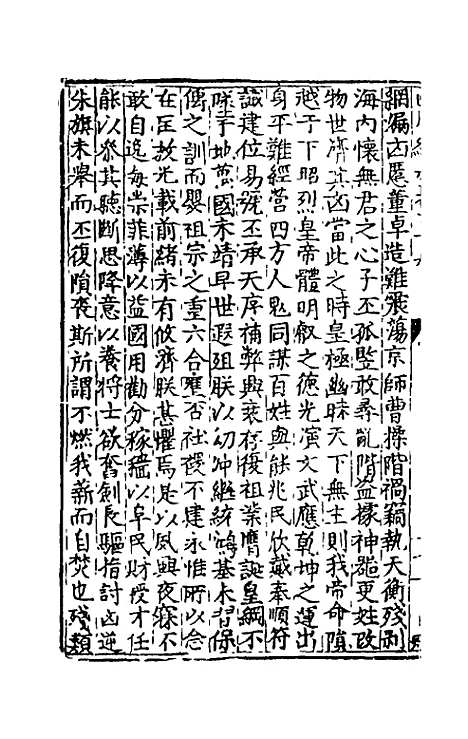 網漏凶慝董卓造難震蕩京師曹操階禍竊執天衡殘剥
海内懷無君之心子丕孤豎敢尋亂階盗㩀神器更姓改
物世濟其凶當此之時皇極幽昧天下無主則我帝命隕
越于下昭烈皇帝體明叡之德光演文武應乾坤之運出
身平難經營四方人鬼同謀百姓與能兆民欣戴奉順符
讖建位易號丕承天序補弊興衰存復祖業膺誕皇綱不
墜于地萬國未靖早世遐殂朕以幼冲繼統鴻基未習保
傅之訓而嬰祖宗之重六合壅否社稷不建永惟所以念
在匡救光載前緒未有攸濟朕甚懼焉是以夙興夜寐不
敢自逸每崇菲薄以益國用勸分務穡以阜民財授才任
能以參其聽斷思降意以養將士欲奮劍長驅指討凶逆
朱旗未舉而丕復隕喪斯所謂不燃我薪而自焚也殘類